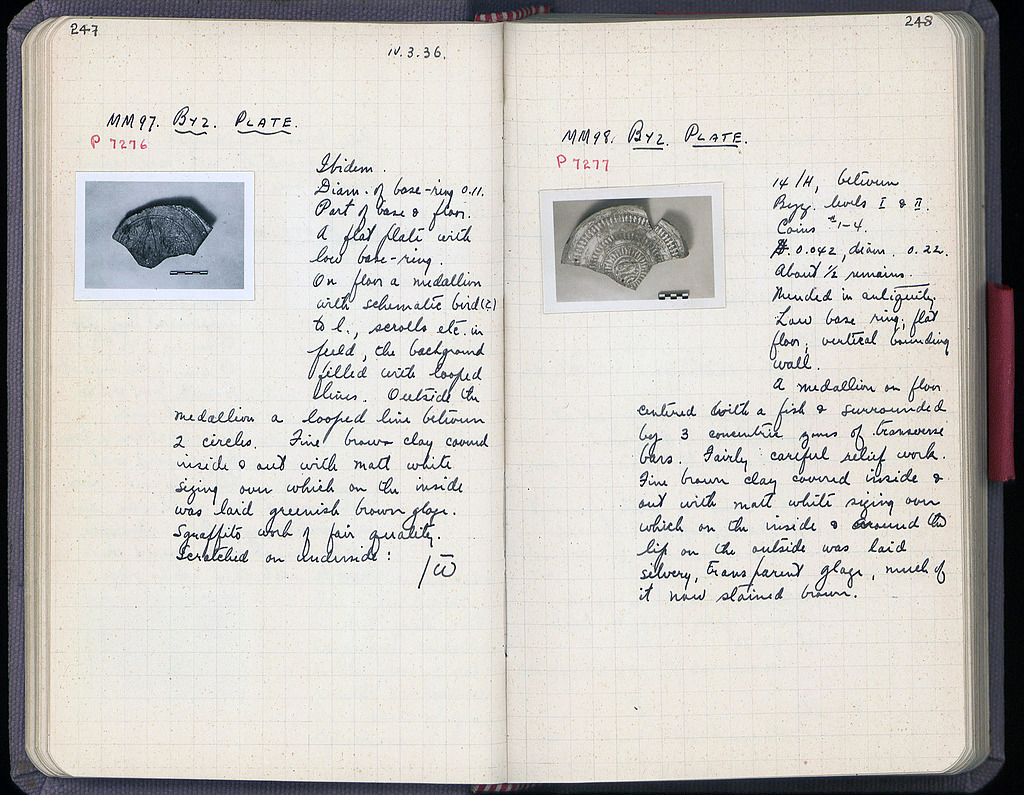 247
IV.3.36.
MM97. BYZ. PLATE.
P 7276
Ibidem.
Diam. of base-ring 0.11.
Part of base & floor.
A flat plate with
low base-ring.
On floor a medallion
with schematic bird(?)
to l., scrolls etc. in
field, the background
filled with looped
lines. Outside the
medallion a looped line between
2 circles. Fine brown clay covered
inside & out with matt white
sizing over which on the inside
was laid greenish brown glaze.
Sgraffito work of fair quality.
Scratched on underside:
248
MM98. BYZ. PLATE.
P 7277
14/H, between
Byz. levels I & II.
Coins #1-4.
H. 0.042, diam. 0.22.
About 1/2 remains.
Mended in antiquity.
Low base ring, flat
floor, vertical bounding
wall.
A medallion on floor
centered with a fish & surrounded
by 3 concentric zones of transverse
bars. Fairly careful relief work.
Fine brown clay covered inside &
out with matt white sizing over
which on the inside & around the
lip on the outside was laid
silvery, transparent glaze, much of
it now stained brown.